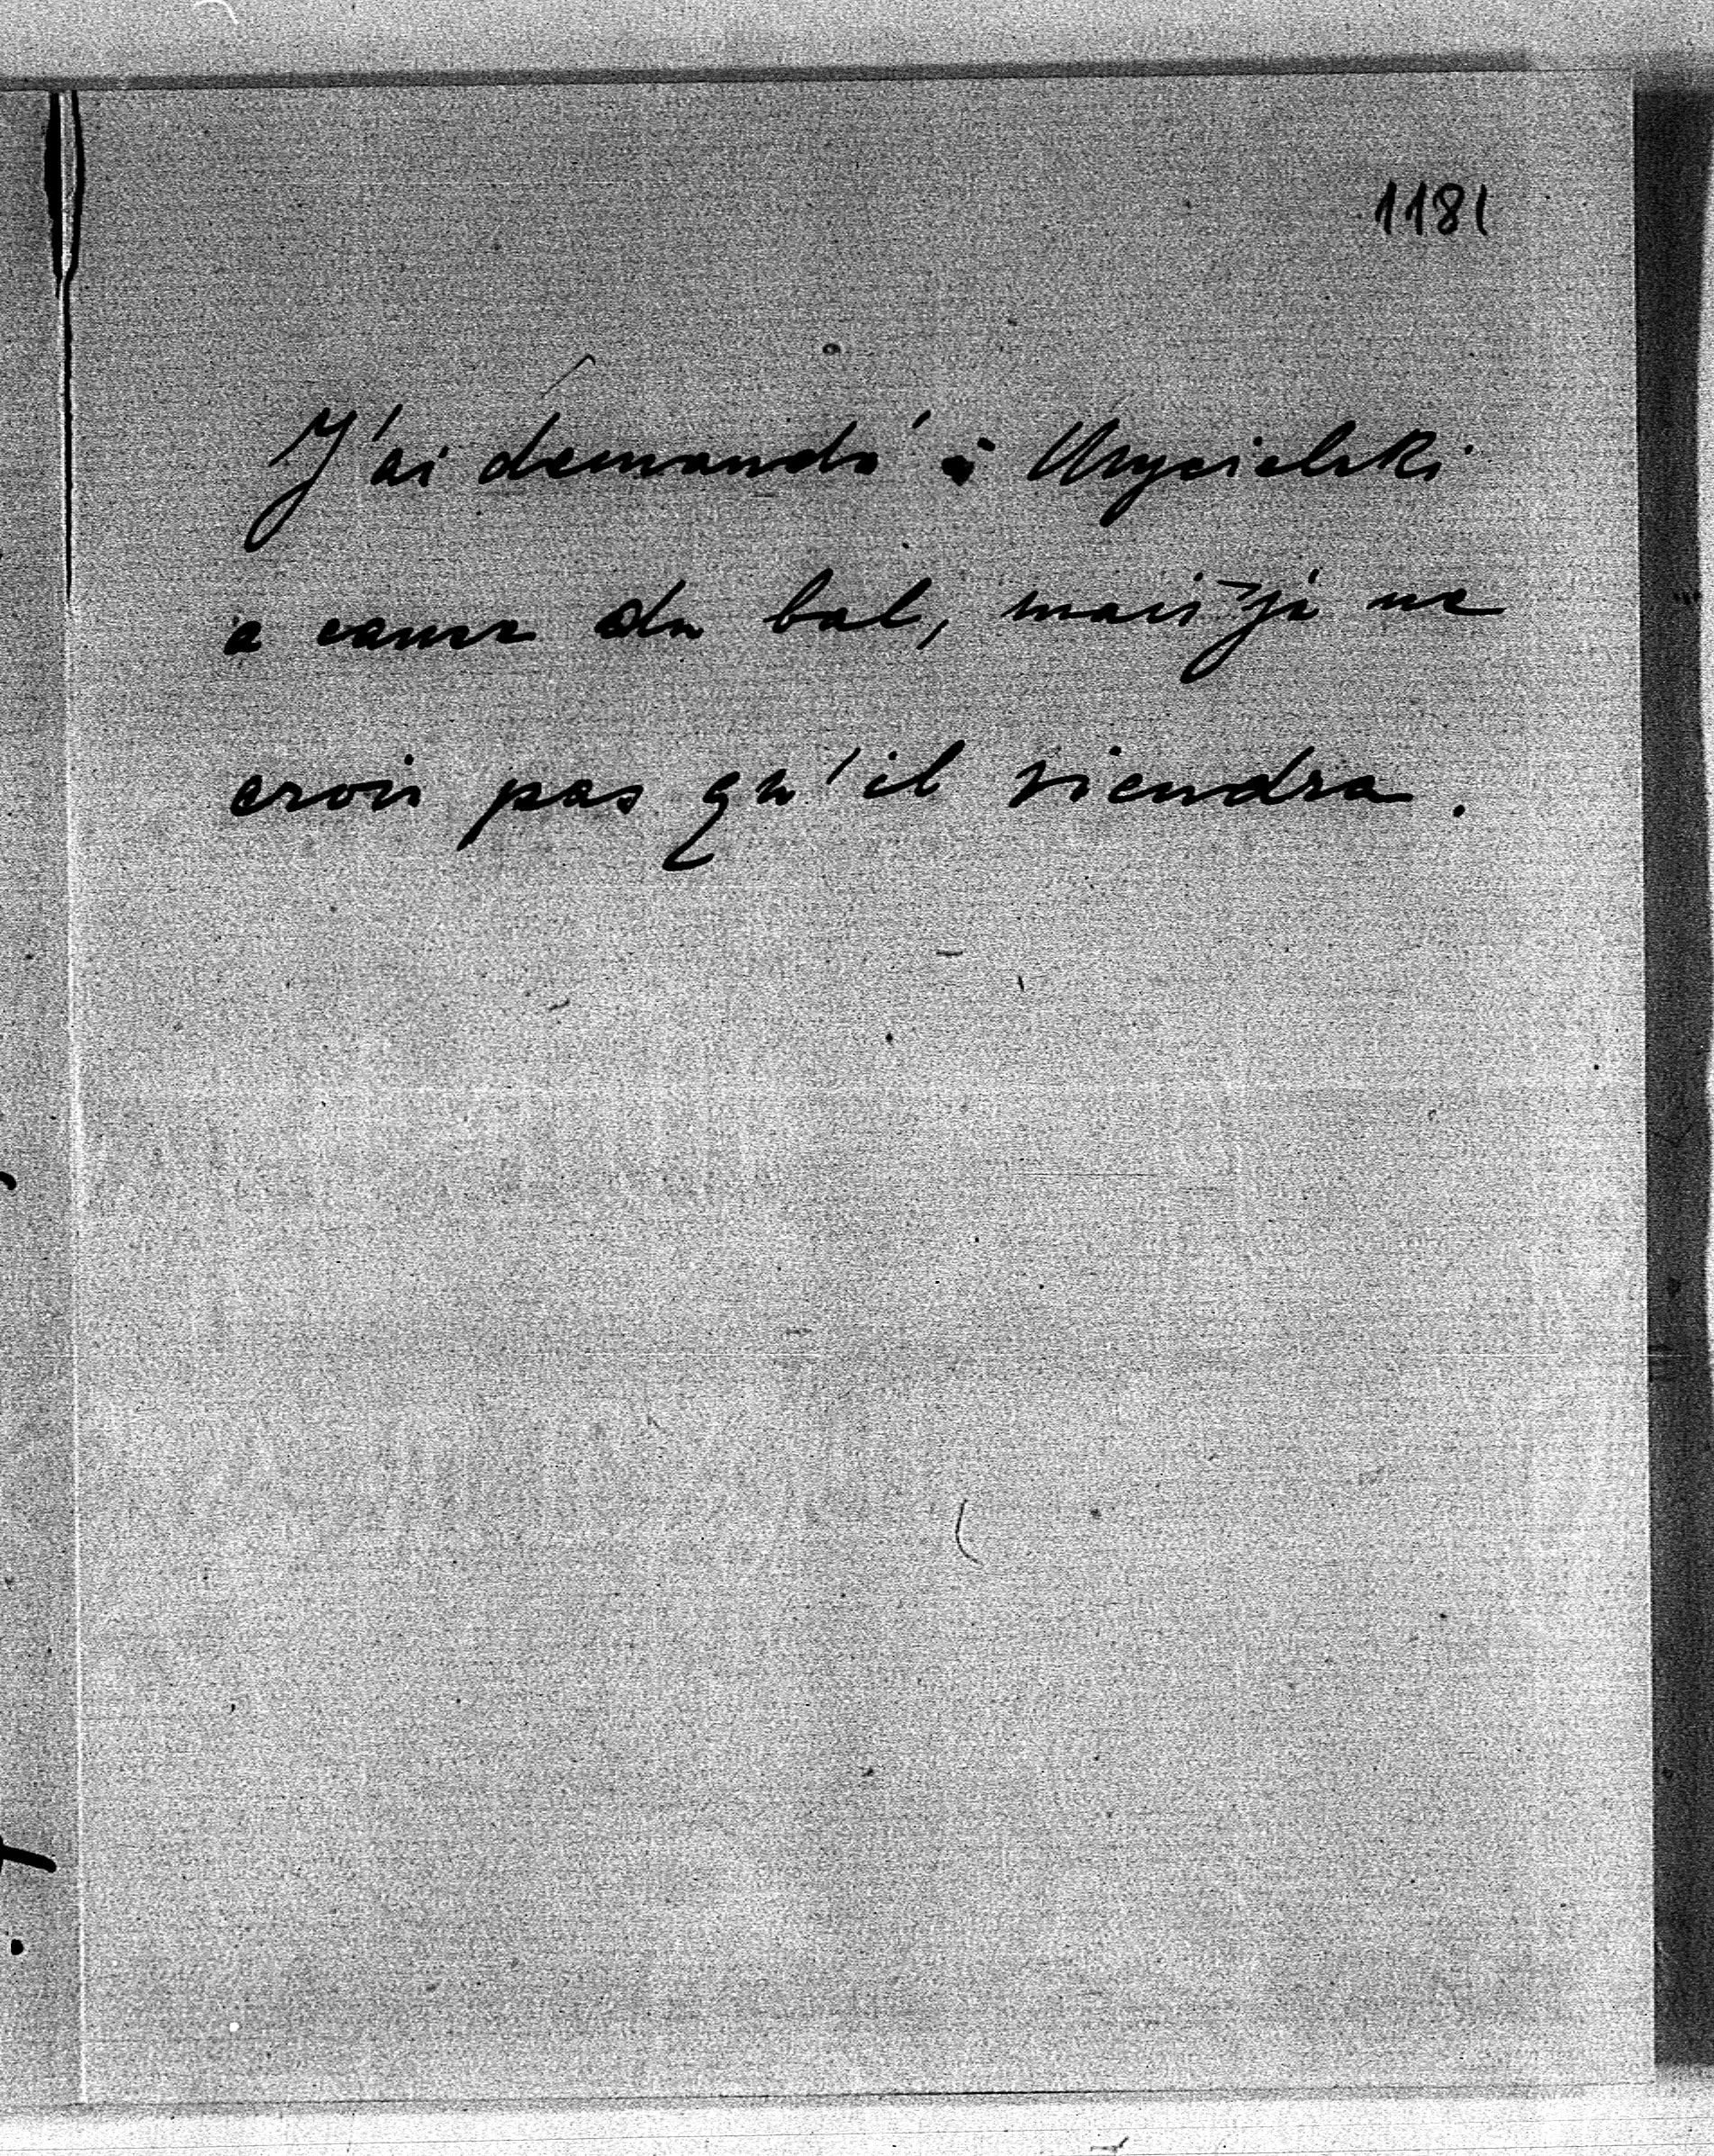 1181
J'ai demandé à Mycielski
a cause du bal, mais je ne
crois pas qu'il viendra.